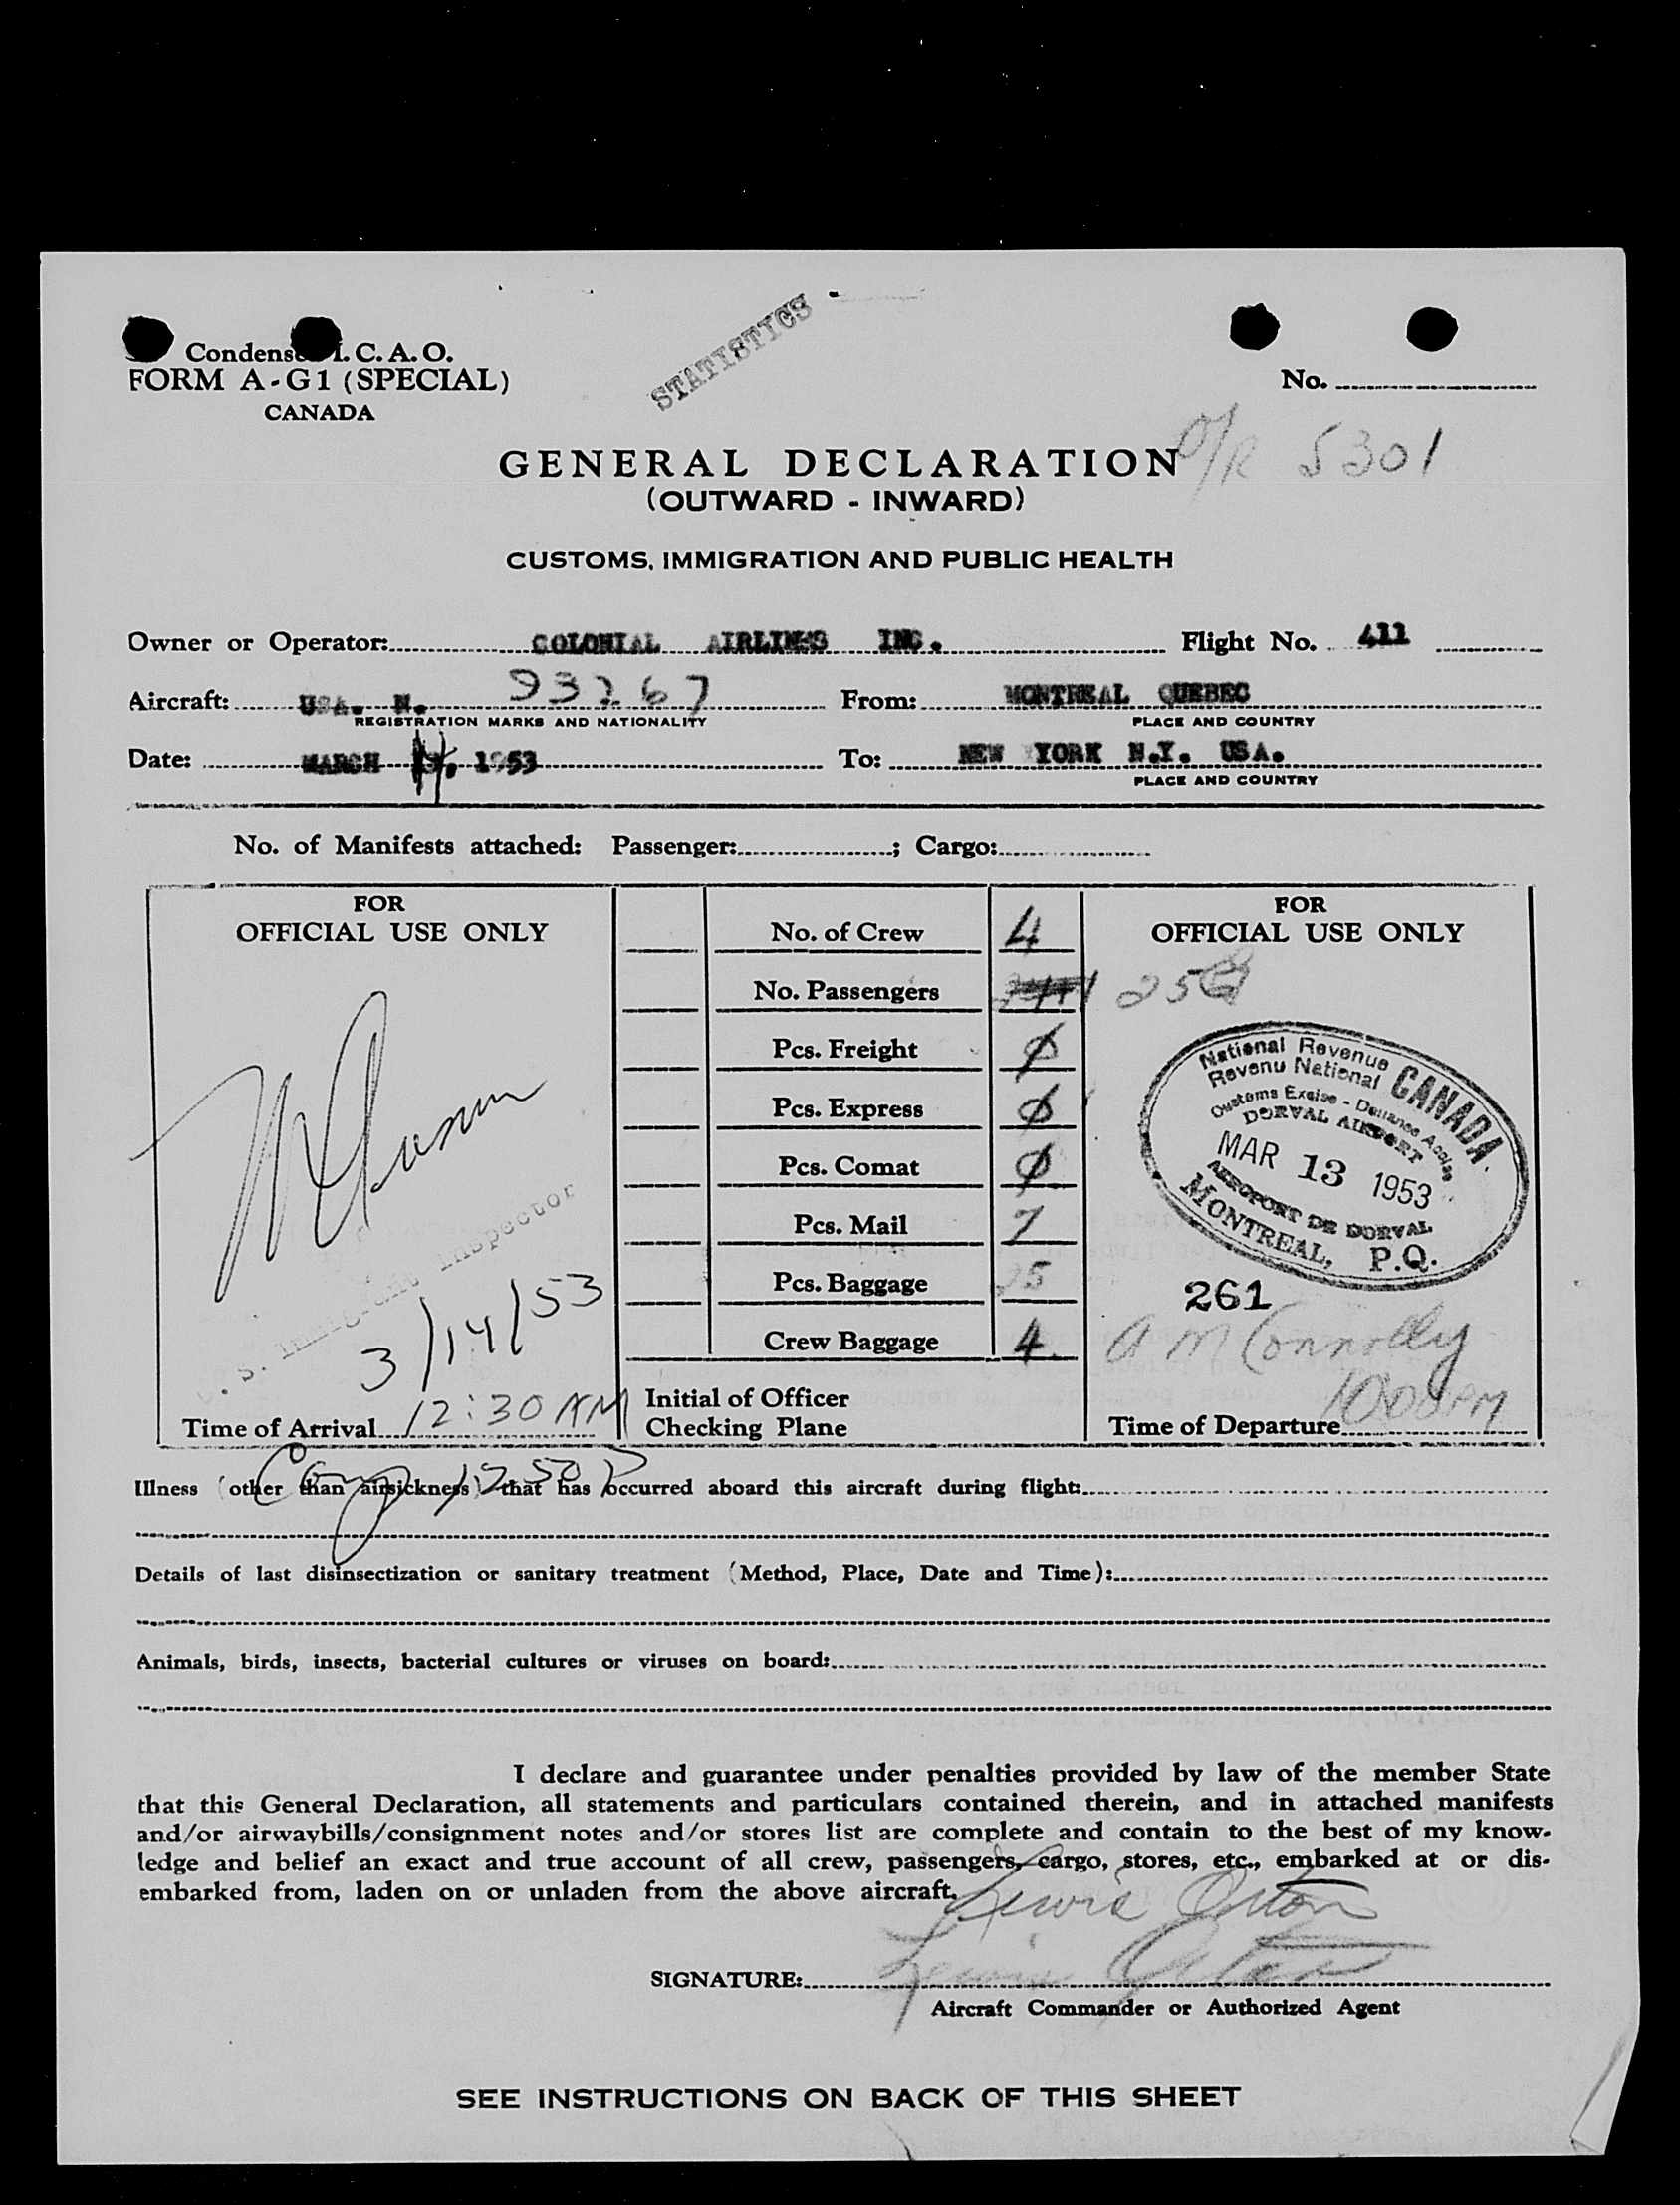 STATISTICS
Condensed I. C. A. O.
FORM A-G1 (SPECIAL)
CANADA
No.
O/R 5301
GENERAL DECLARATION
(OUTWARD - INWARD)
CUSTOMS, IMMIGRATION AND PUBLIC HEALTH
Owner or Operator: COLONIAL AIRLINES INC. Flight No. 411
Aircraft: USA. N. 93267 From: MONTREAL QUEBEC
REGISTRATION MARKS AND NATIONALITY PLACE AND COUNTRY
Date: MARCH 14, 1953 To: NEW YORK N.Y. USA.
PLACE AND COUNTRY
No. of Manifests attached: Passenger: ; Cargo:
FOR
OFFICIAL USE ONLY
U.S. Immigrant Inspector
3/14/53
Time of Arrival 12:30 AM
No. of Crew 4
No. Passengers 25
Pcs. Freight Ø
Pcs. Express Ø
Pcs. Comat Ø
Pcs. Mail 7
Pcs. Baggage 25
Crew Baggage 4
Initial of Officer
Checking Plane
FOR
OFFICIAL USE ONLY
National Revenue
Revenu National
CANADA
Customs Excise - Douanes Accise
DORVAL AIRPORT
MAR 13 1953
AEROPORT DE DORVAL
MONTREAL, P.Q.
261
A M Connolly
Time of Departure 1008 PM
Illness (other than airsickness) that has occurred aboard this aircraft during flight:
Details of last disinsectization or sanitary treatment (Method, Place, Date and Time):
Animals, birds, insects, bacterial cultures or viruses on board:
I declare and guarantee under penalties provided by law of the member State
that this General Declaration, all statements and particulars contained therein, and in attached manifests
and/or airwaybills/consignment notes and/or stores list are complete and contain to the best of my know-
ledge and belief an exact and true account of all crew, passengers, cargo, stores, etc., embarked at or dis-
embarked from, laden on or unladen from the above aircraft.
Lewis Orton
SIGNATURE: Lewis Orton
Aircraft Commander or Authorized Agent
SEE INSTRUCTIONS ON BACK OF THIS SHEET